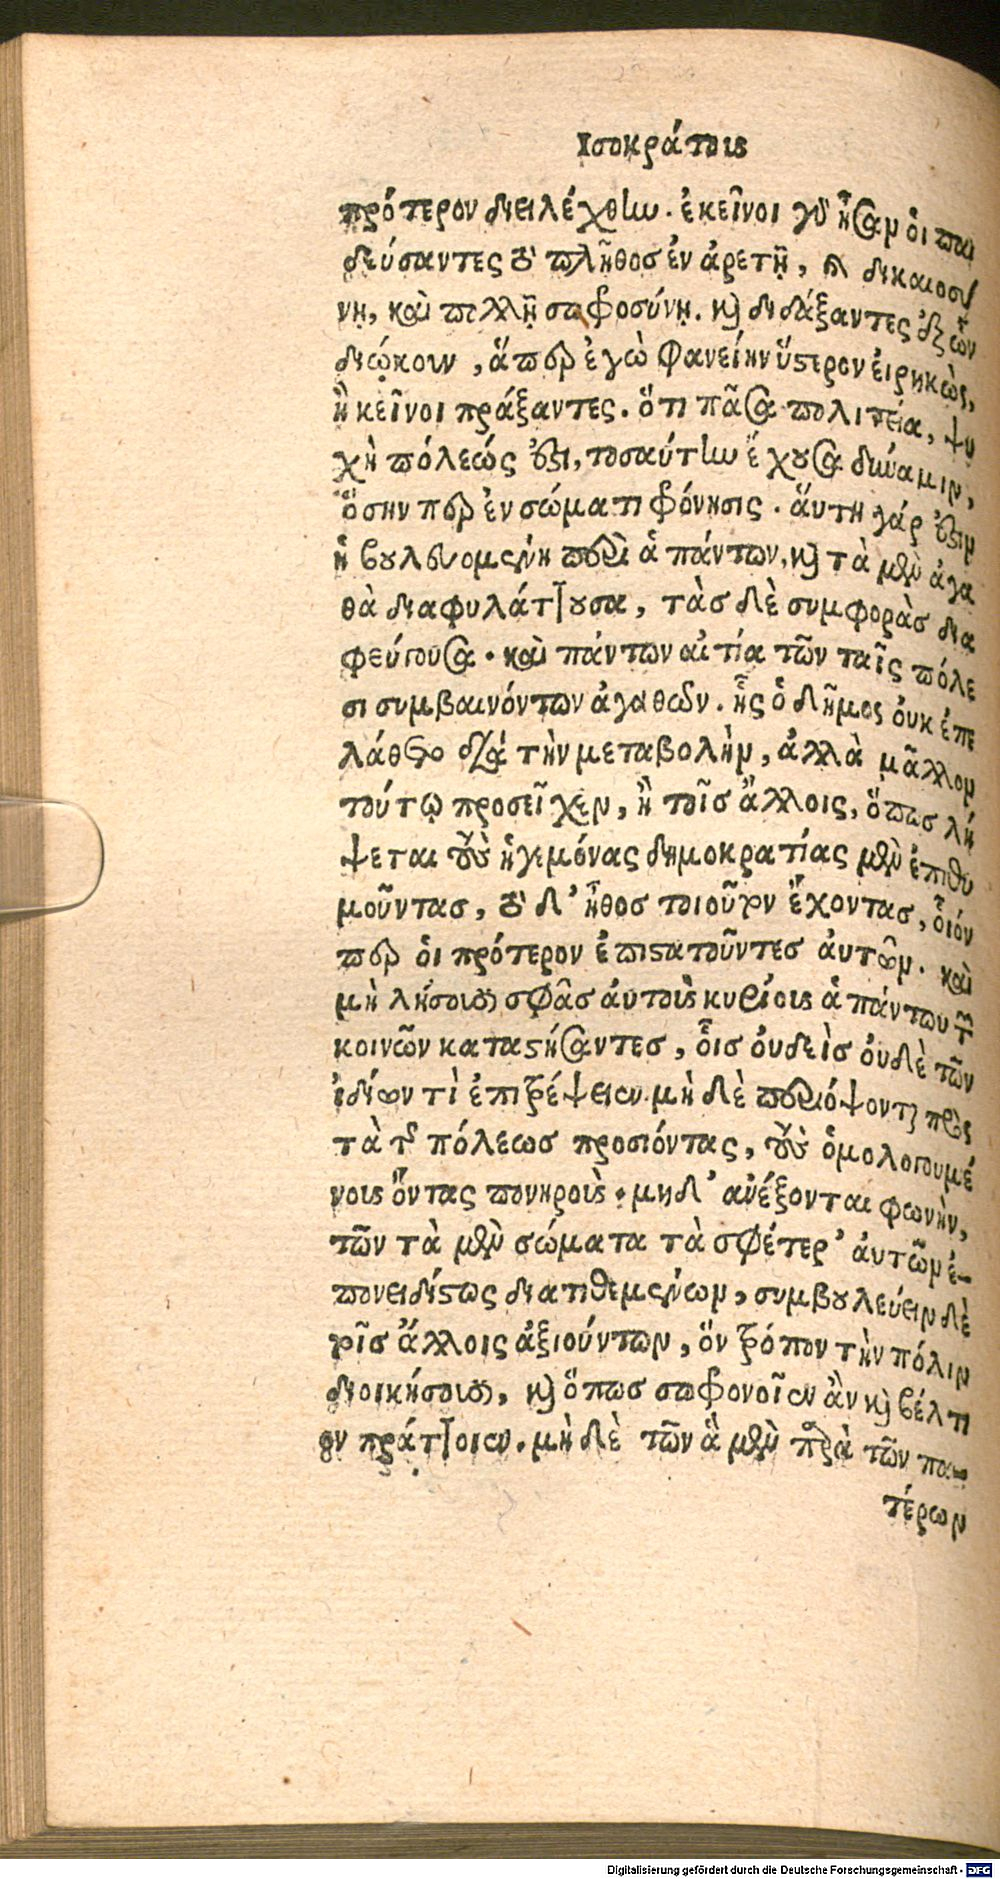 Ισοκράτους
πρότερον διειλέχθην. ἐκεῖνοι γὰρ ἦσαν ὁι παι
δεύσαντες τὸ πλῆθοσ ἐν ἀρετῇ, καὶ δικαιοσύ
νῃ, καὶ πολλῇ σωφροσύνῃ. καὶ διδάξαντες ἐξ ὧν
διῴκουν, ἅπερ ἐγὼ φανείην ὕστερον ἐιρηκὼς,
ἢ κεῖνοι πράξαντες. ὅτι πᾶσα πολιτεία, ψυ
χὴ πόλεώς ἐστι, τοσαύτην ἔχουσα δύναμιν,
ὅσην περ ἐν σώματι φρόνησις. ἅυτη γάρ ἐστιν
ἡ βουλευομένη περὶ ἁπάντων, καὶ τὰ μὲν ἀγα
θὰ διαφυλάττουσα, τὰσ δὲ συμφορὰσ δια
φεύγουσα. καὶ πάντων αἰτία τῶν ταῖς πόλε
σι συμβαινόντων ἀγαθῶν. ἧς ὁ δῆμος ὀυκ ἐπε
λάθετο διὰ τὴν μεταβολὴν, ἀλλὰ μᾶλλον
τούτῳ προσεῖχεν, ἢ τοῖσ ἄλλοις, ὅπωσ λή
ψεται τοὺς ἡγεμόνας δημοκρατίας μὲν ἐπιθυ
μοῦντασ, τὸ δ' ἦθοσ τοιοῦτον ἔχοντασ, ὁἷόν
περ ὁι πρότερον ἐπιστατοῦντεσ ἀυτῶν. καὶ
μὴ λήσουσι σφᾶσ ἀυτοὺς κυρίους ἁπάντων τῶν
κοινῶν καταστήσαντεσ, ὁἷσ ὀυδεὶσ ὀυδὲ τῶν
ἰδίων τὶ ἐπιτρέψειεν. μὴ δὲ περιόψονται πρὸς
τὰ τῆς πόλεωσ προσιόντας, τοὺς ὁμολογουμέ
νους ὄντας πονηροὺς. μηδ' ἀνέξονται φωνὴν,
τῶν τὰ μὲν σώματα τὰ σφέτερ' ἀυτῶν ἐ-
πονειδίστως διατιθεμένων, συμβουλεύειν δὲ
τοῖσ ἄλλοις ἀξιούντων, ὅν τρόπον τὴν πόλιν
διοικήσουσι, καὶ ὅπωσ σωφρονοῖεν ἂν καὶ βέλτι
ον πράττοιεν. μὴ δὲ τῶν ἃ μὲν παρὰ τῶν πα-
τέρων
Digitalisierung gefördert durch die Deutsche Forschungsgemeinschaft - DFG